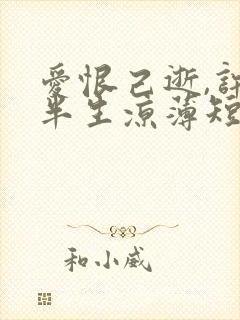 爱恨已逝,許
半生凉薄短
和小威